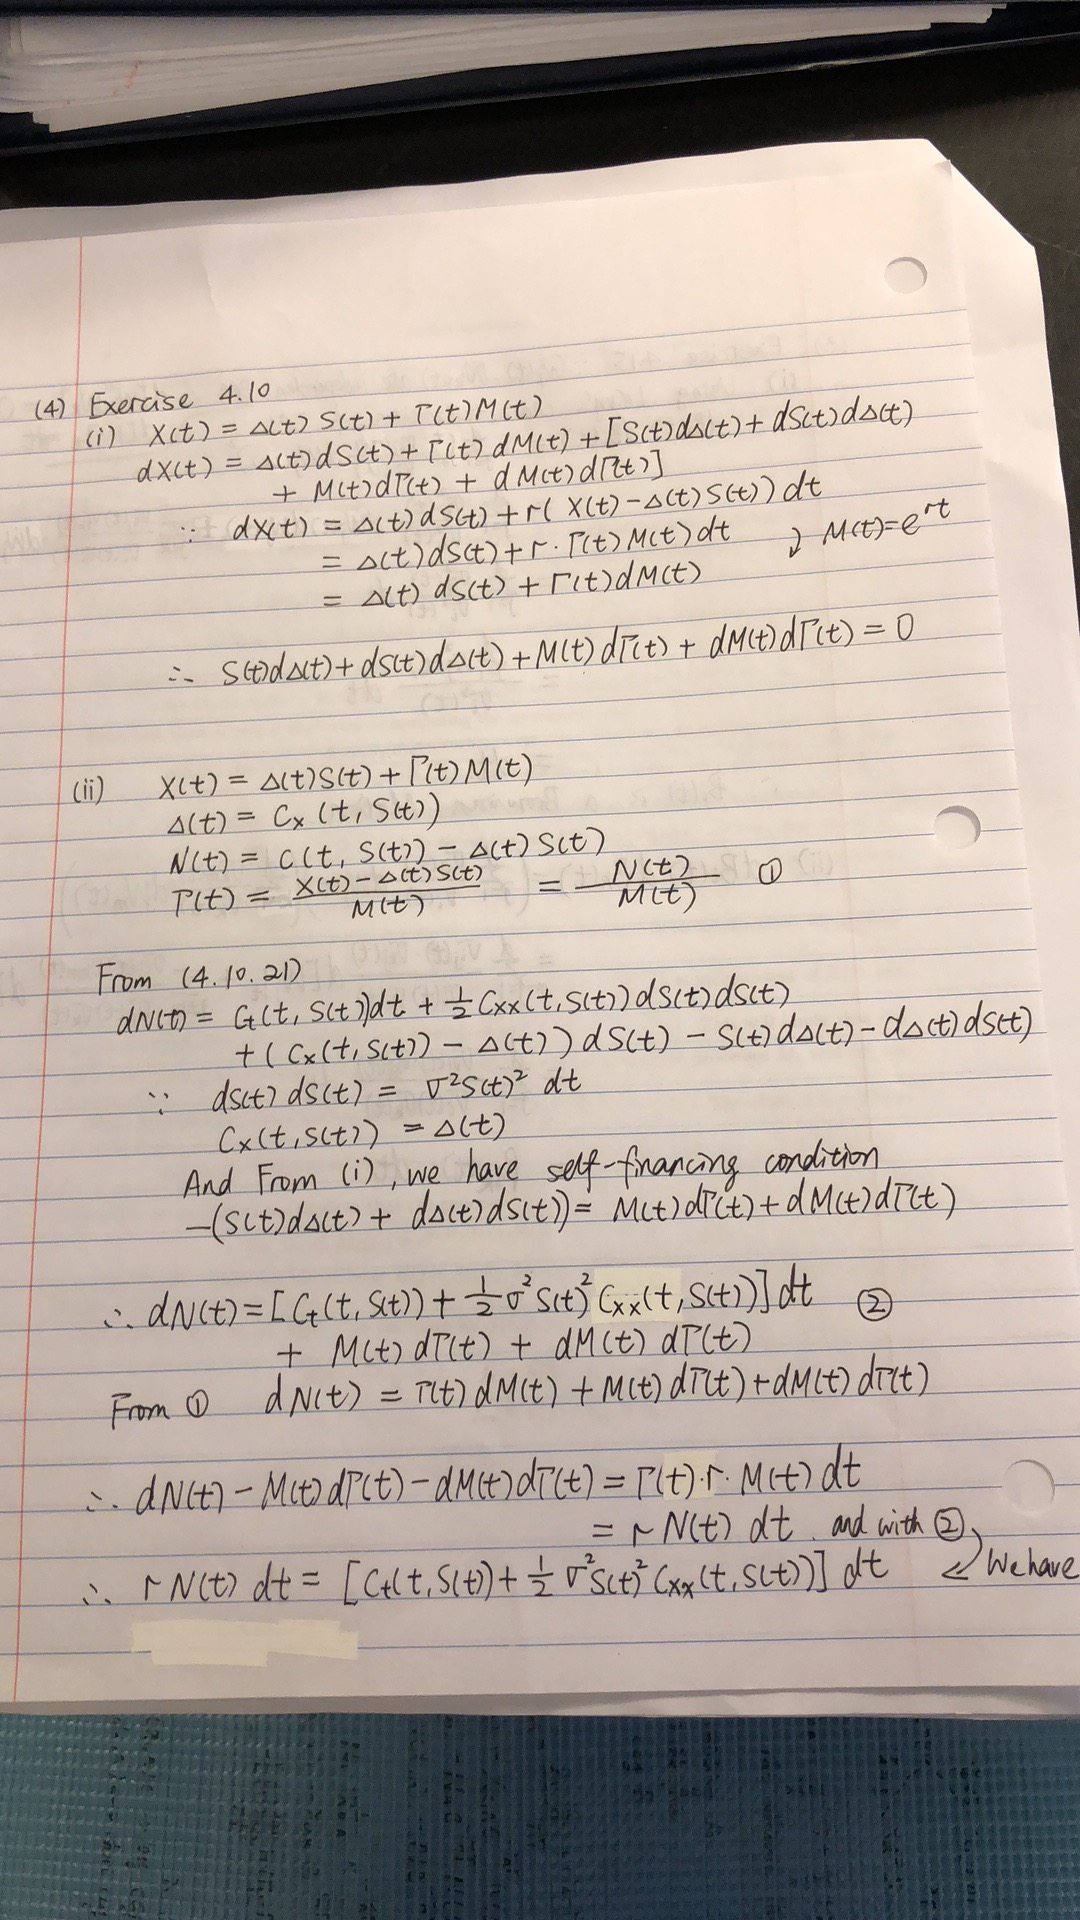 (4) Exercise 4.10
(i) X(t) = Δ(t) S(t) + Γ(t) M(t)
dX(t) = Δ(t) dS(t) + Γ(t) dM(t) + [S(t) dΔ(t) + dS(t) dΔ(t)
+ M(t) dΓ(t) + dM(t) dΓ(t)]
∵ dX(t) = Δ(t) dS(t) + r( X(t) - Δ(t) S(t)) dt
= Δ(t) dS(t) + r · Γ(t) M(t) dt M(t) = e^{rt}
= Δ(t) dS(t) + Γ(t) dM(t)
∴ S(t) dΔ(t) + dS(t) dΔ(t) + M(t) dΓ(t) + dM(t) dΓ(t) = 0
(ii) X(t) = Δ(t) S(t) + Γ(t) M(t)
Δ(t) = Cx (t, S(t))
N(t) = C(t, S(t)) - Δ(t) S(t)
Γ(t) = \frac{X(t) - Δ(t) S(t)}{M(t)} = \frac{N(t)}{M(t)} ①
From (4.10.21)
dN(t) = Ct(t, S(t)) dt + ½ Cxx(t, S(t)) dS(t) dS(t)
+ ( Cx(t, S(t)) - Δ(t) ) dS(t) - S(t) dΔ(t) - dΔ(t) dS(t)
∵ dS(t) dS(t) = σ² S(t)² dt
Cx(t, S(t)) = Δ(t)
And From (i), we have self-financing condition
-(S(t) dΔ(t) + dΔ(t) dS(t)) = M(t) dΓ(t) + dM(t) dΓ(t)
∴ dN(t) = [Ct(t, S(t)) + ½ σ² S(t)² Cxx(t, S(t))] dt ②
+ M(t) dΓ(t) + dM(t) dΓ(t)
From ① dN(t) = Γ(t) dM(t) + M(t) dΓ(t) + dM(t) dΓ(t)
∴ dN(t) - M(t) dΓ(t) - dM(t) dΓ(t) = Γ(t) · r · M(t) dt
= r N(t) dt and with ②,
∴ r N(t) dt = [Ct(t, S(t)) + ½ σ² S(t)² Cxx(t, S(t))] dt We have